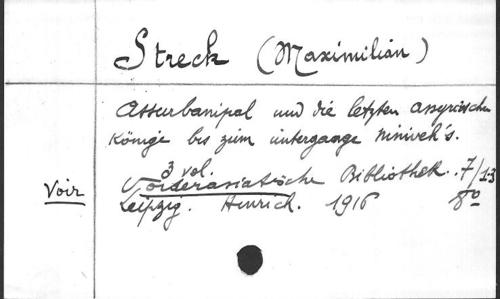 Streck (Maximilian)
Assurbanipal und die letzten assyrischen
Könige bis zum untergange Niniveh's.
3 vol.
Voir Vorderasiatische Bibliothek. 7/13
Leipzig. Hinrich. 1916 8º